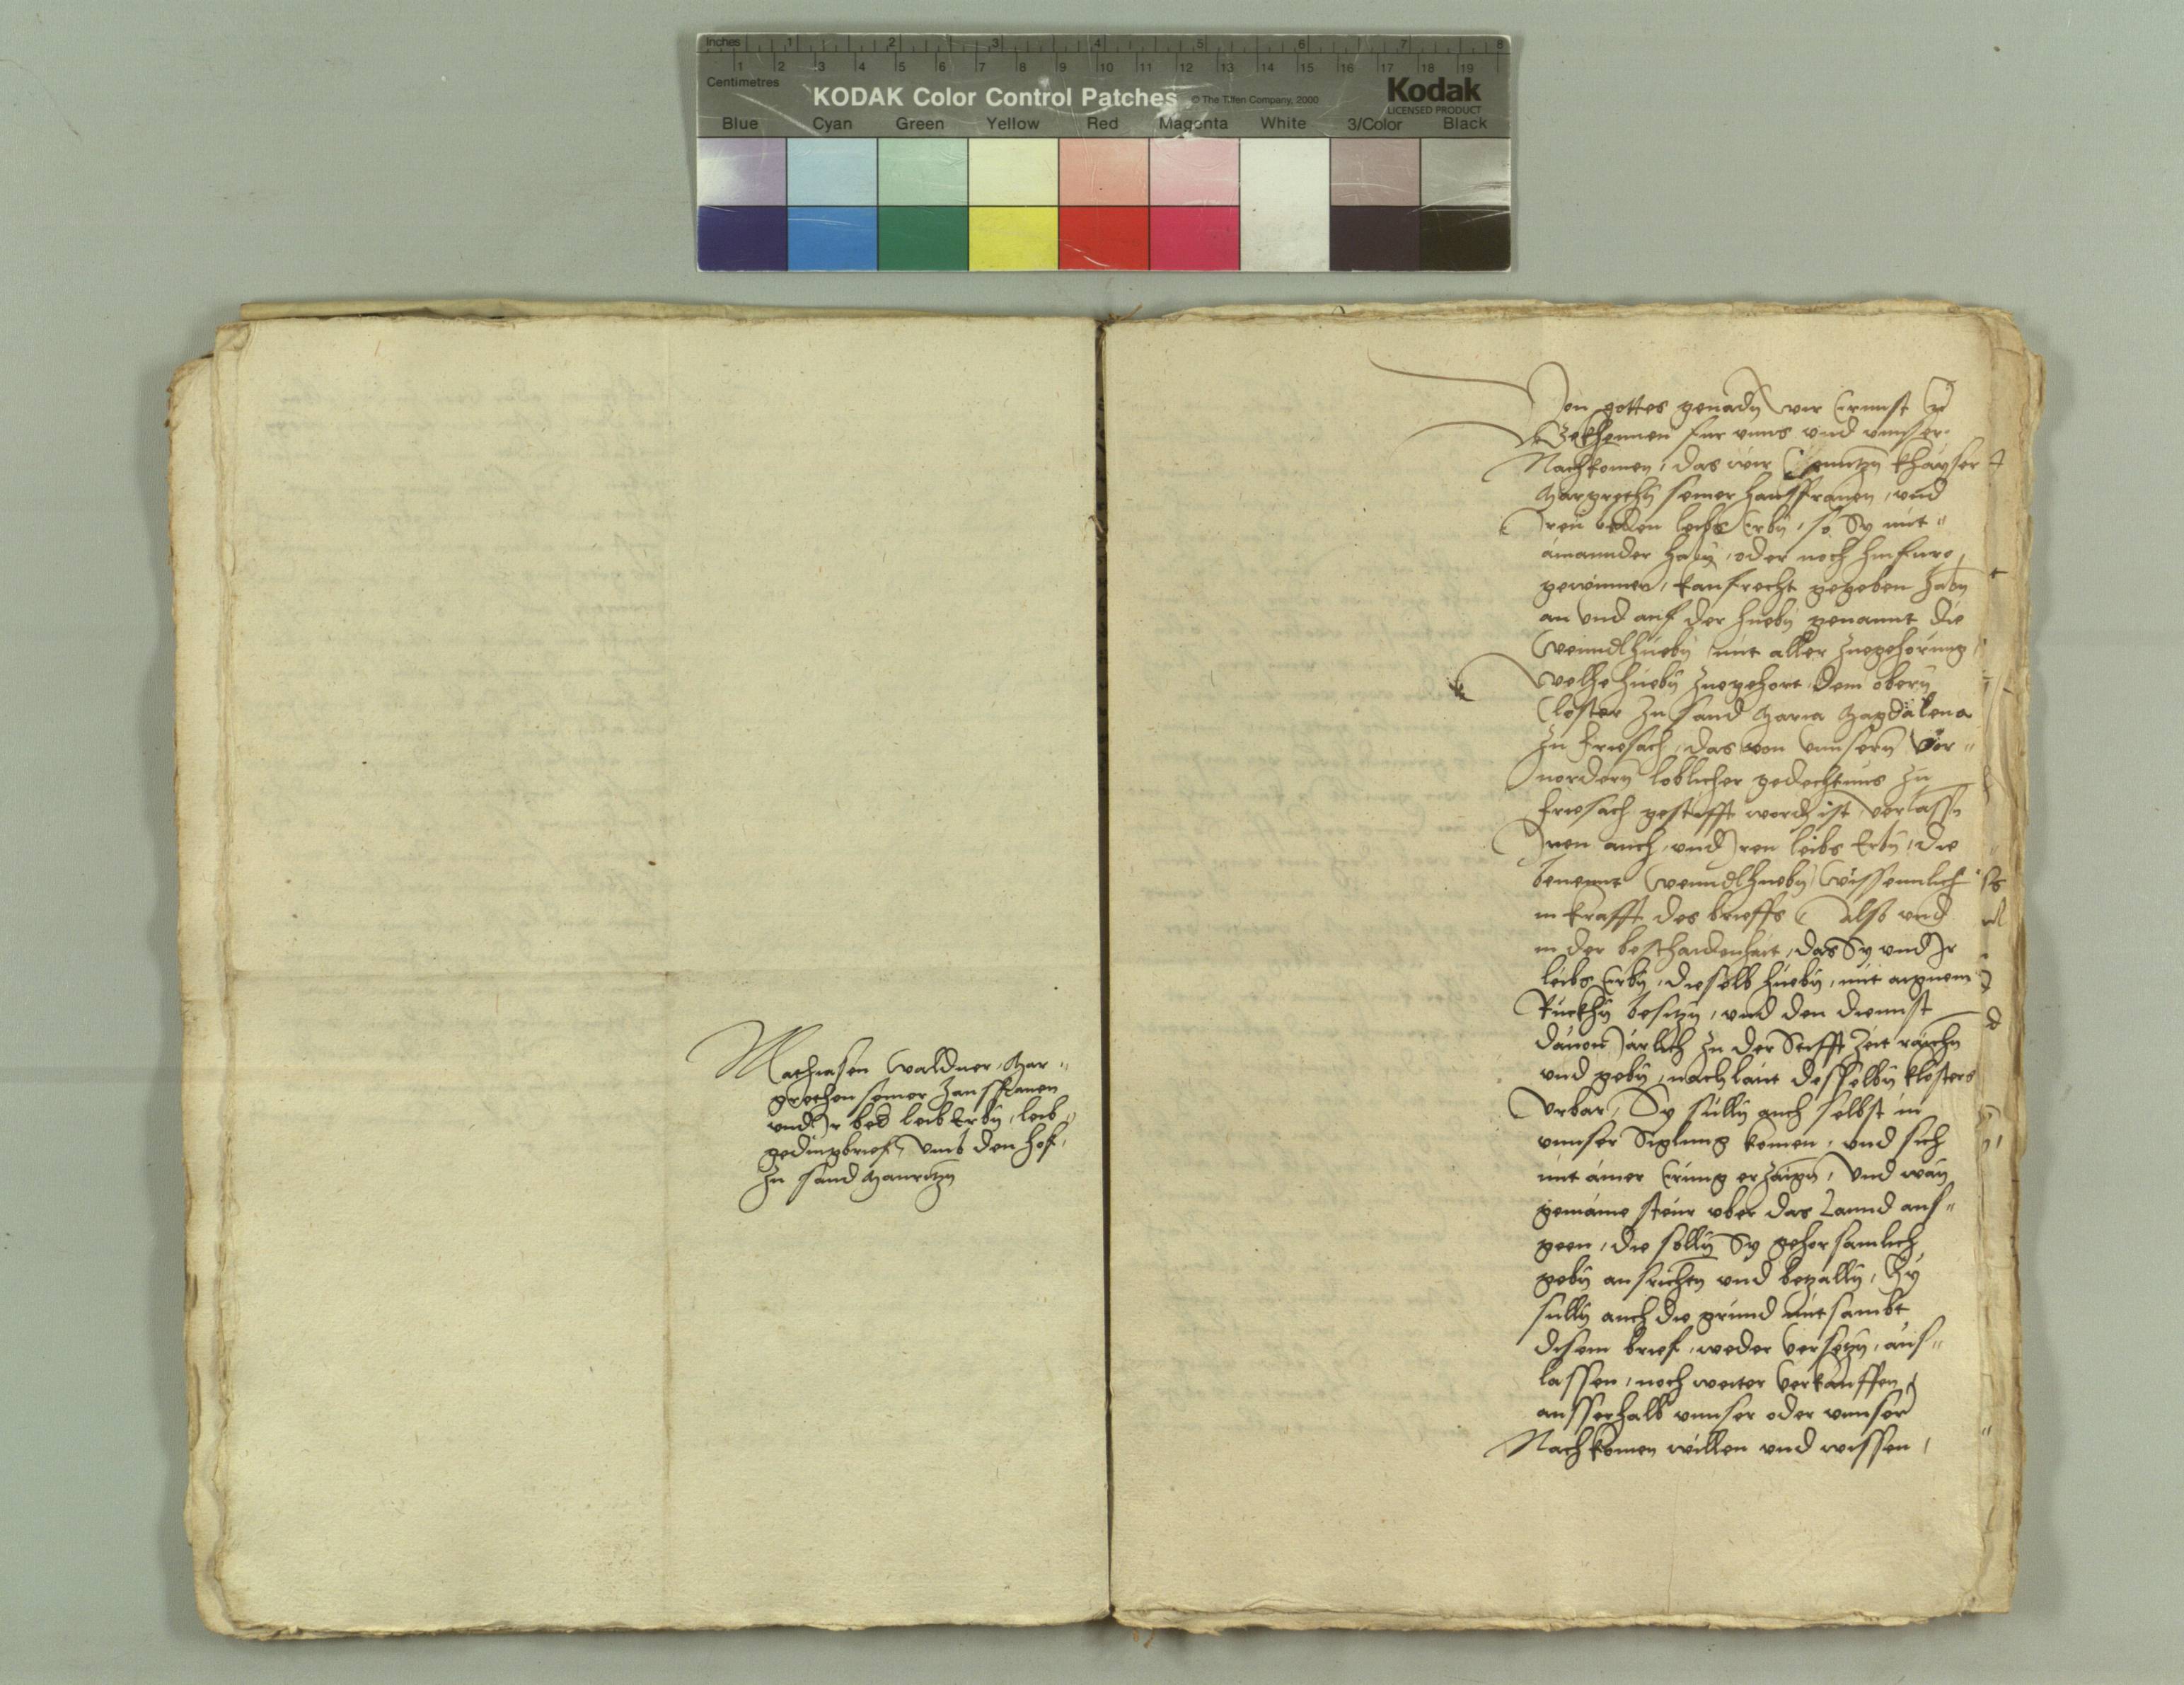 Inches 1 2 3 4 5 6 7 8
1 2 3 4 5 6 7 8 9 10 11 12 13 14 15 16 17 18 19
Centimetres
KODAK Color Control Patches © The Tiffen Company, 2000
Kodak
LICENSED PRODUCT
Blue Cyan Green Yellow Red Magenta White 3/Color Black
Mathiasen Waldner, Mar„
grethen seiner Hausfrauen
vnd Ir bed leib Erbn, leib„
gedingbrief, vmb den hof,
zu sand Mauritzn
Von gottes genadn wir Ernnst
Bekhennen fur vnns vnd vnnser
Nachkomen, das wir khayser
Margrethn seiner Hausfrauen, vnd
Iren beden leibs Erbn, so Sy mit„
ainannder habn, oder noch hinfuro,
gewinnen, kaufrecht gegeben habn
an vnd auf der huebn genannt die
mit aller zuegehorung,
welhe huebn zuegehort dem obern
Closter zu sand Maria Magdalena
zu Friesach, das von vnnsern Vor„
vordern loblicher gedechtnus zu
Friesach gestifft wordn ist verlassn
Inen auch, vnd Iren leibs Erbn, die
benennt wissenntlich
in krafft des brieffs Also vnd
in der beschaidenhait, das Sy vnd Ir
leibs Erbn, dieselb huebn, mit aignem
Ruckhn besitzn, vnd den diennst
dauon Järlich zu der Stifft Zeit raichn
vnd gebn, nach laut desselbn klosters
Vrbar, Sy sulln auch selbst in
vnnser Siglung komen, vnd sich
mit ainer Erung erzaign, Vnd wan
gemaine steur vber das Lannd aus„
geen, die solln Sy gehorsamlich
gebn ausrichtn vnd bezalln, Sy
sulln auch die grund mitsambt
disem brief, weder versetzn, auf„
lassen, noch weiter verkauffen,
ausserhalb vnnser oder vnnser
Nachkomen willen vnd wissen,